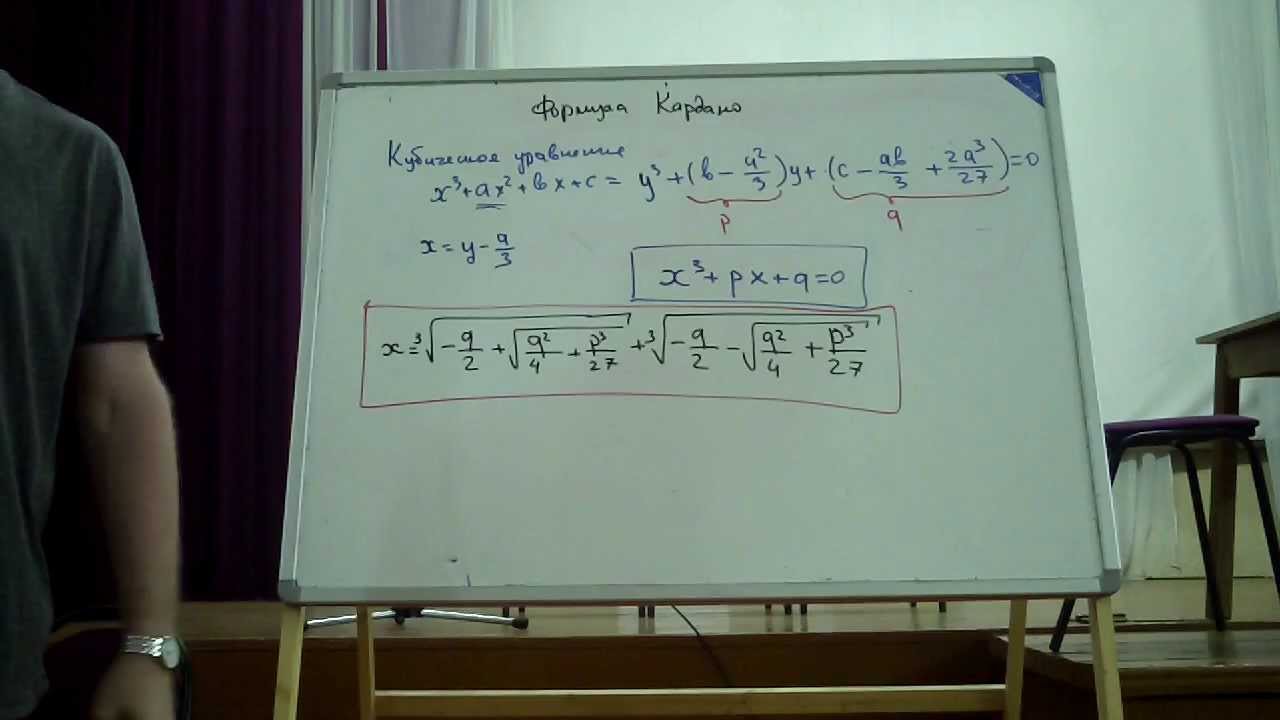 Формула Кардано
Кубическое уравнение
x³+ax²+bx+c = y³+(b-a²/3)y+(c-ab/3+2a³/27)=0
p q
x=y-a/3
x³+px+q=0
x=³√(-q/2+√(q²/4+p³/27))+³√(-q/2-√(q²/4+p³/27))